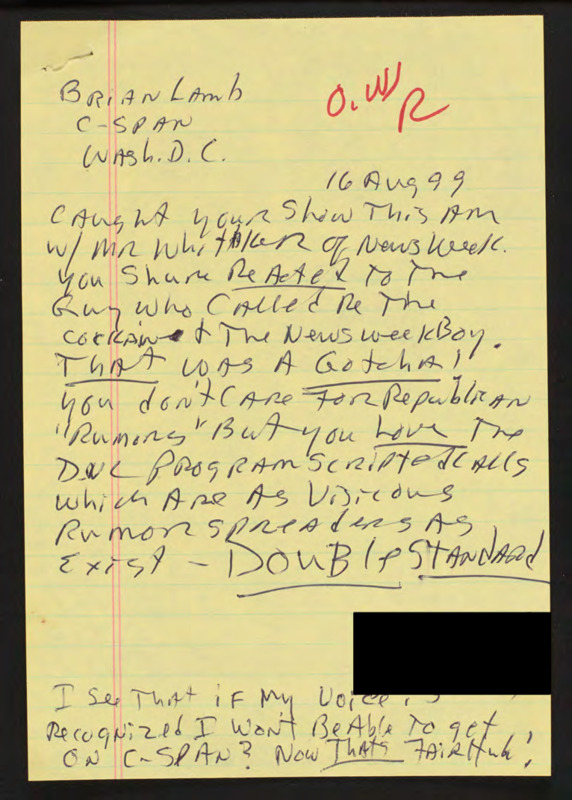 Brian Lamb
C-SPAN
Wash. D.C.
O.W/
R
16 Aug 99
Caught your Show This Am
w/ MR Whitaker of Newsweek.
You Shure ReActed To The
Guy who CAlled Re The
& The Newsweek Boy.
That was A Gotcha!
You don't CARE FOR Republican
"Rumors" But you Love The
DNC PROGRAM Scripted CAlls
which Are As Visicous
Rumor spreaders As
Exist - DOUBle STANDARd
I See That if My Voice is
Recognized I Wont Be Able To get
ON C-SPAN? Now Thats FAIR Huh!